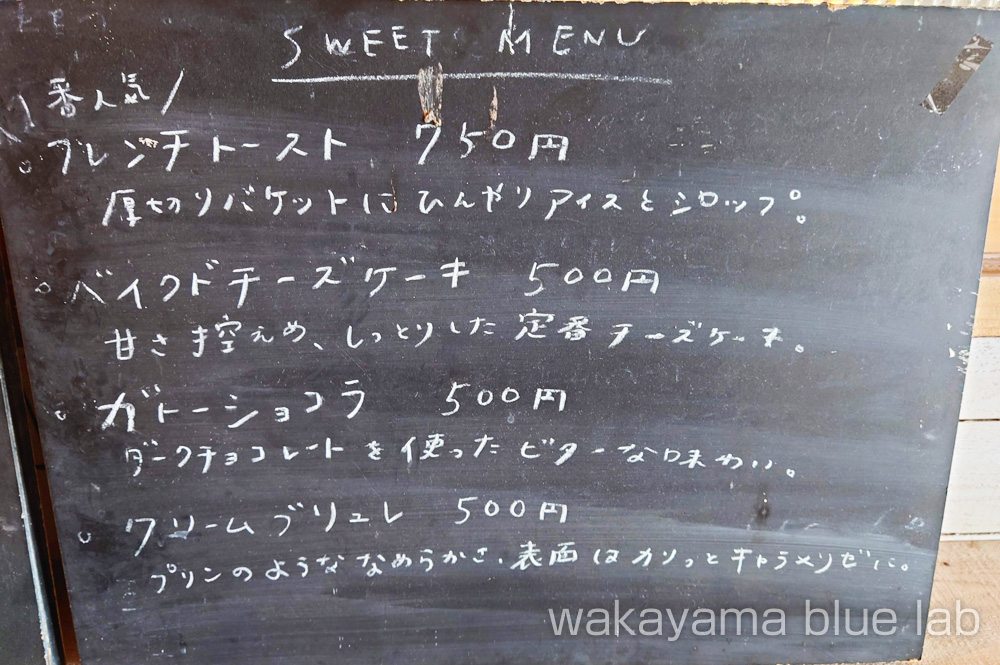 SWEET MENU
\1番人気/
。フレンチトースト 750円
厚切りバケットにひんやりアイスとシロップ。
。ベイクドチーズケーキ 500円
甘さ控えめ、しっとりした定番チーズケーキ。
。ガトーショコラ 500円
ダークチョコレートを使ったビターな味わい。
。クリームブリュレ 500円
プリンのようななめらかさ、表面はカリっとキャラメリゼに。
wakayama blue lab